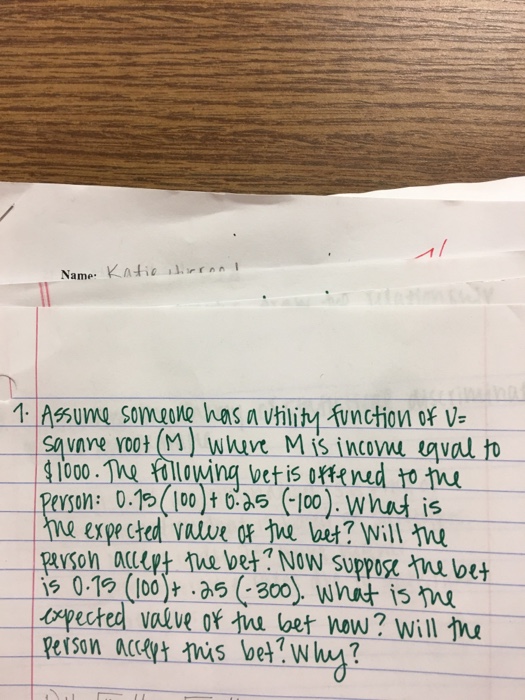 Name: Katie
1. Assume someone has a utility function of U=
square root (M) where M is income equal to
$1000. The following bet is offered to the
person: 0.75 (100) + 0.25 (-100). What is
the expected value of the bet? Will the
person accept the bet? Now suppose the bet
is 0.75 (100) + .25 (-300). What is the
expected value of the bet now? Will the
person accept this bet? Why?